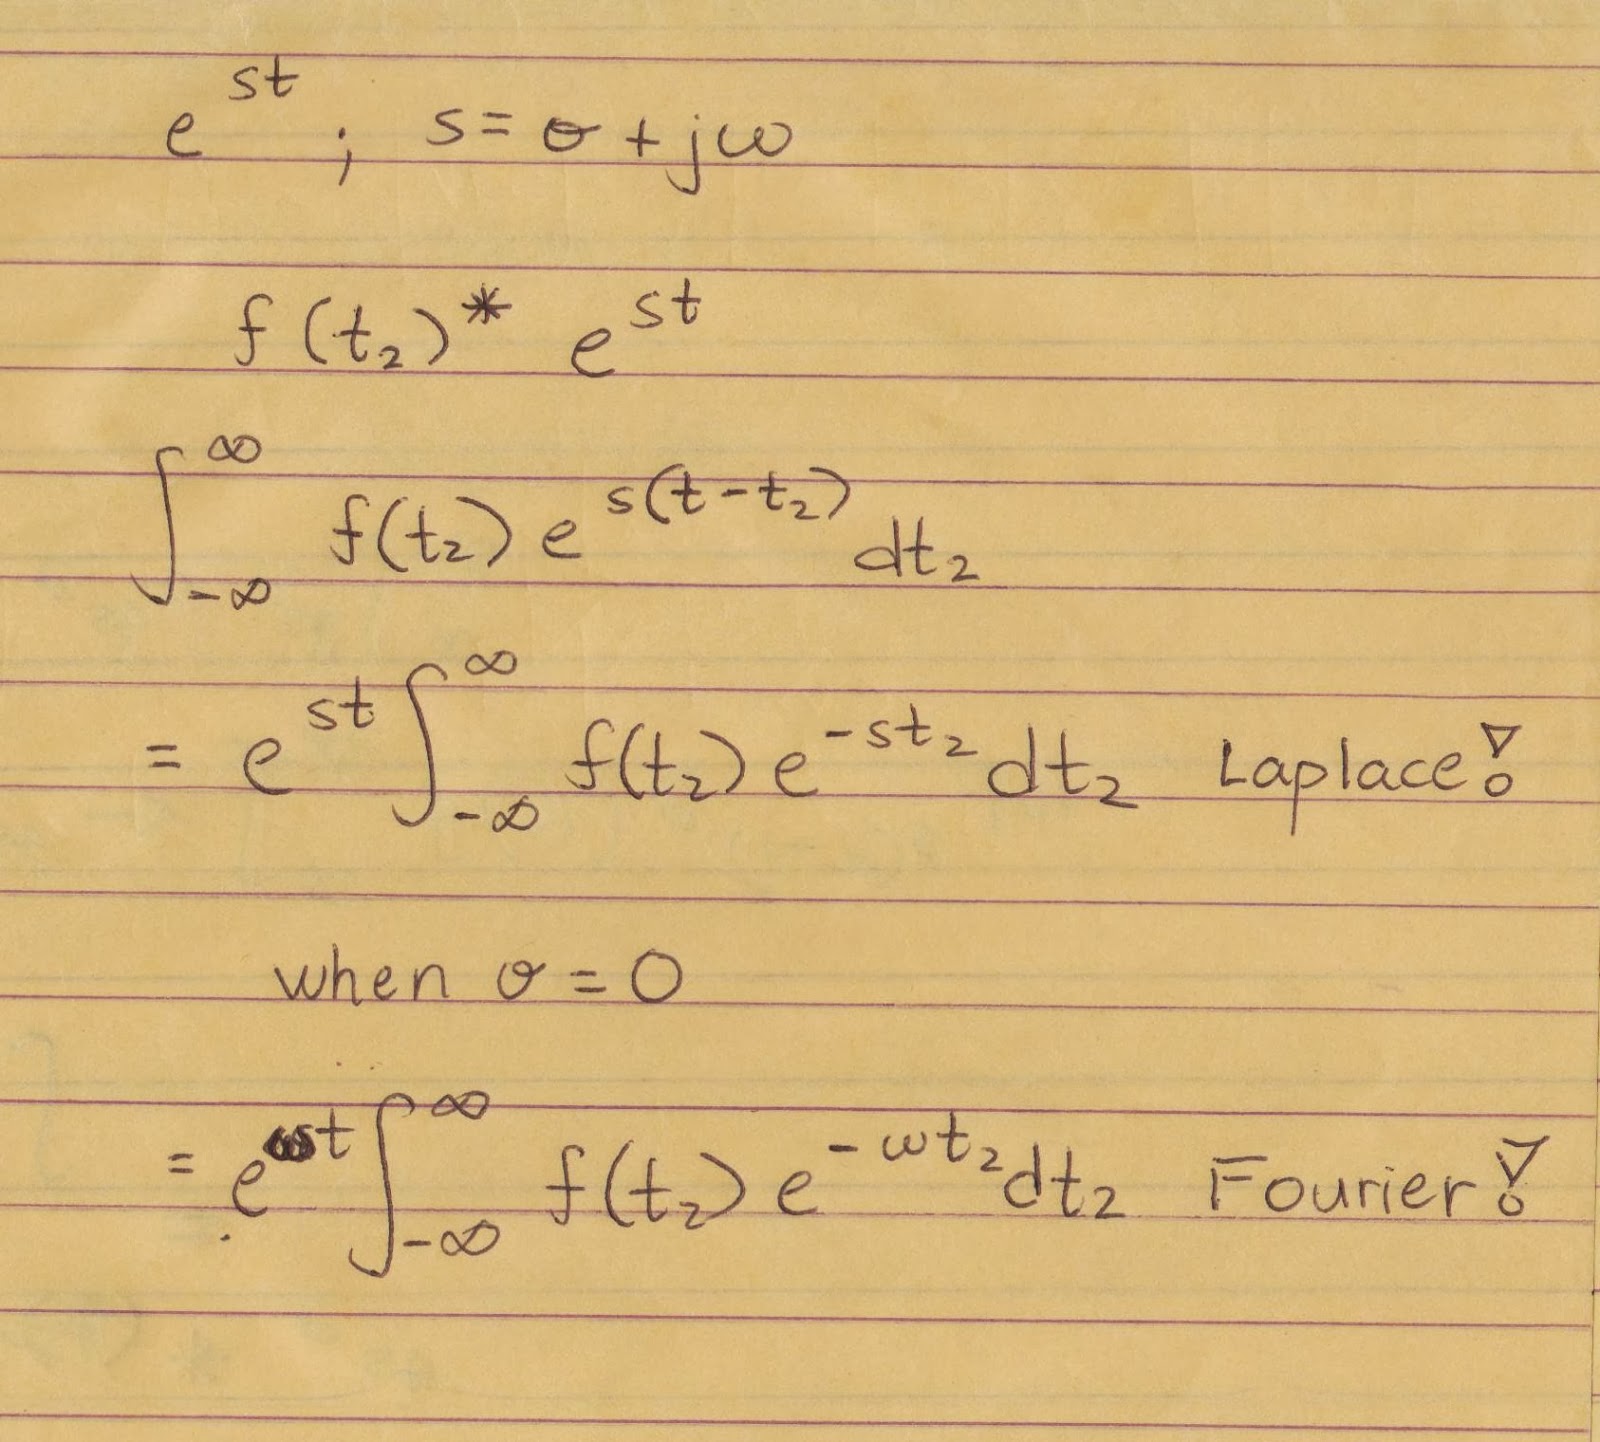 e^{st} ; s = σ + jω
f(t₂) * e^{st}
∫_{-∞}^{∞} f(t₂) e^{s(t-t₂)} dt₂
= e^{st} ∫_{-∞}^{∞} f(t₂) e^{-st₂} dt₂ Laplace!
when σ = 0
= e^{ωt} ∫_{-∞}^{∞} f(t₂) e^{-ωt₂} dt₂ Fourier!